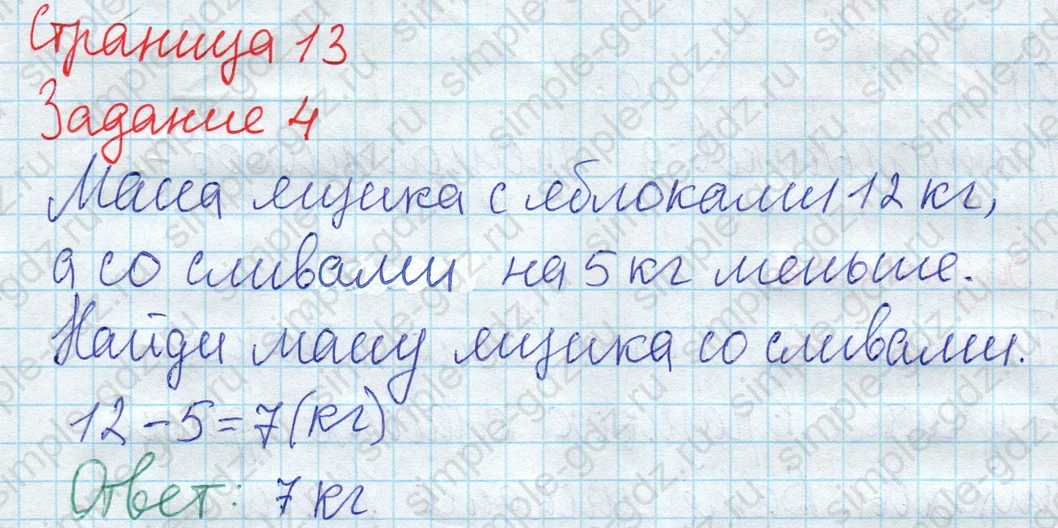 Страница 13
Задание 4
Масса ящика с яблоками 12 кг,
а со сливами на 5 кг меньше.
Найди массу ящика со сливами.
12 - 5 = 7 (кг)
Ответ: 7 кг
simple-gdz.ru